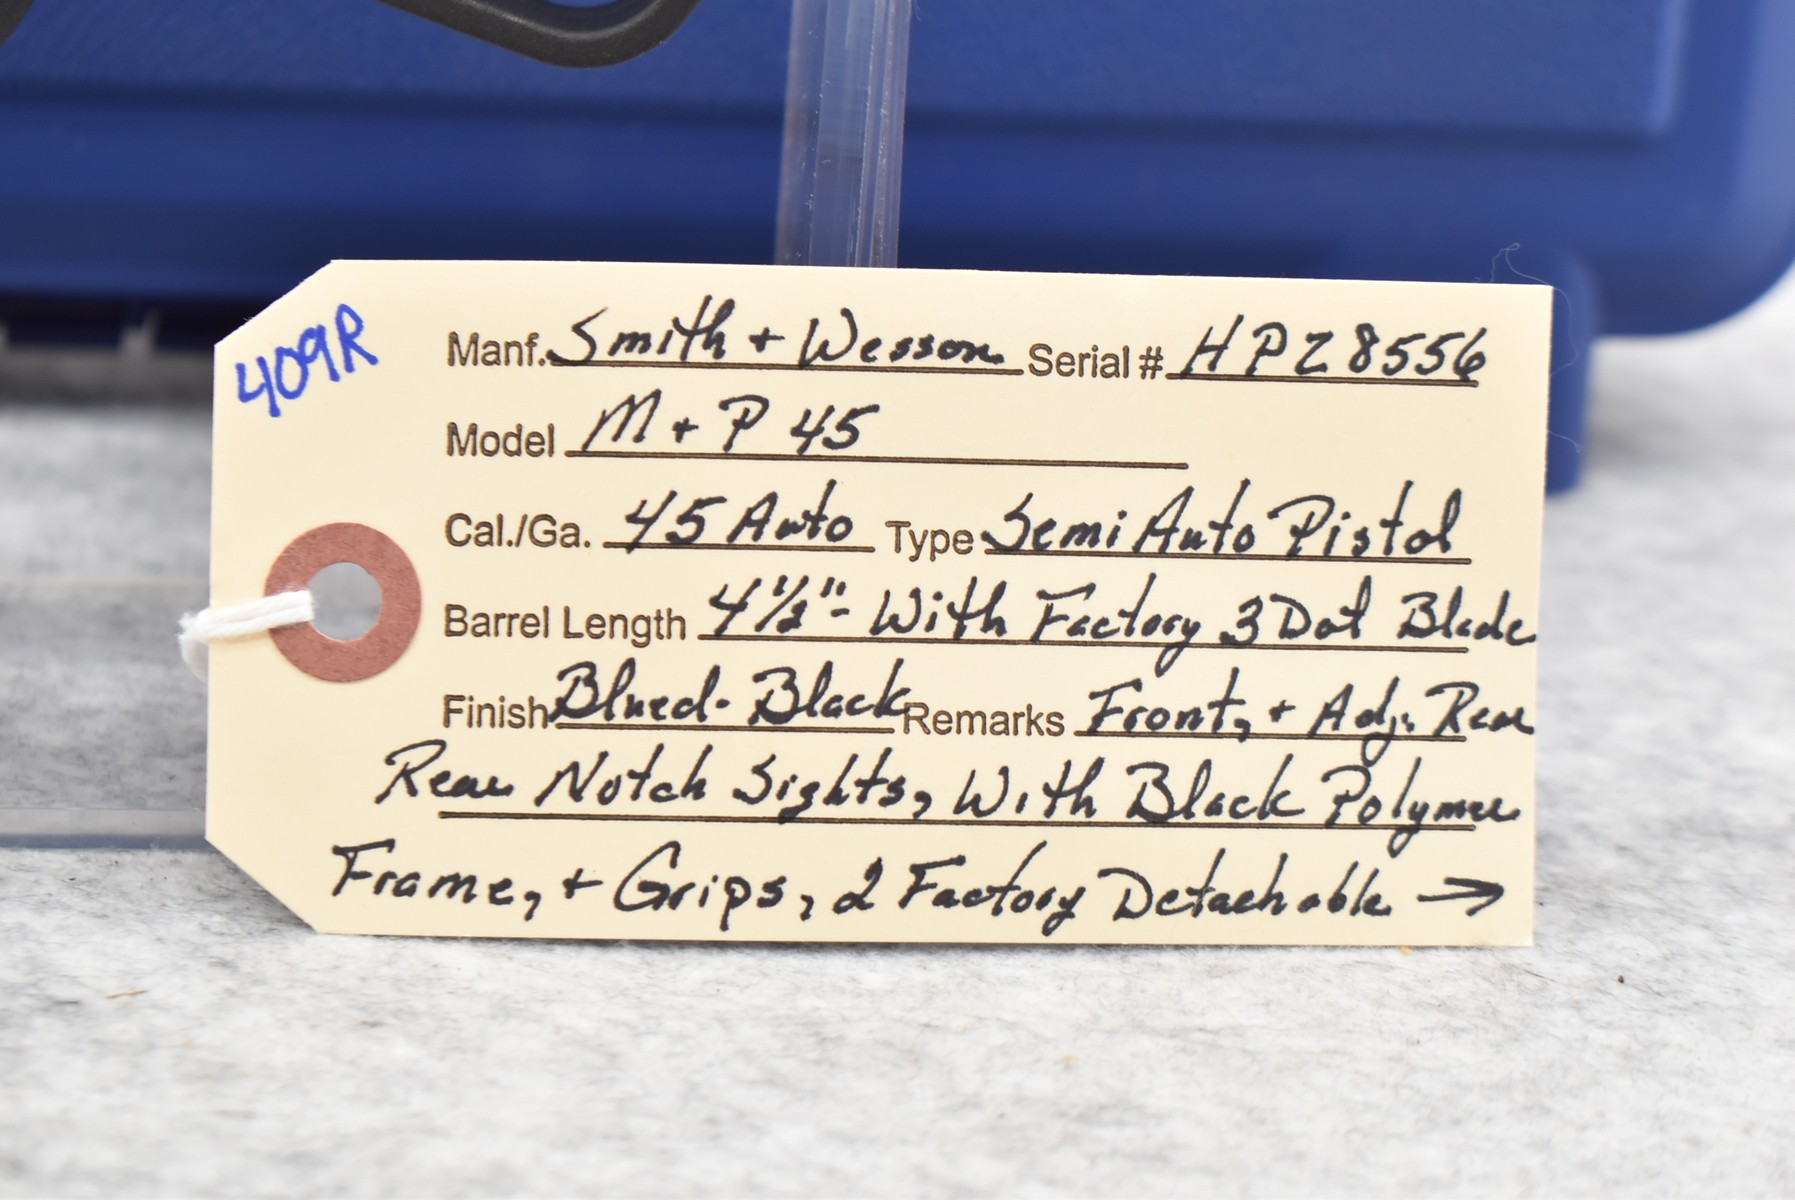 409R
Manf. Smith + Wesson Serial # HPZ8556
Model M + P 45
Cal./Ga. 45 Auto Type Semi Auto Pistol
Barrel Length 4 1/2" - With Factory 3 Dot Blade
Finish Blued - Black Remarks Front, + Adj. Rear
Rear Notch Sights, With Black Polymer
Frame, + Grips, 2 Factory Detachable →